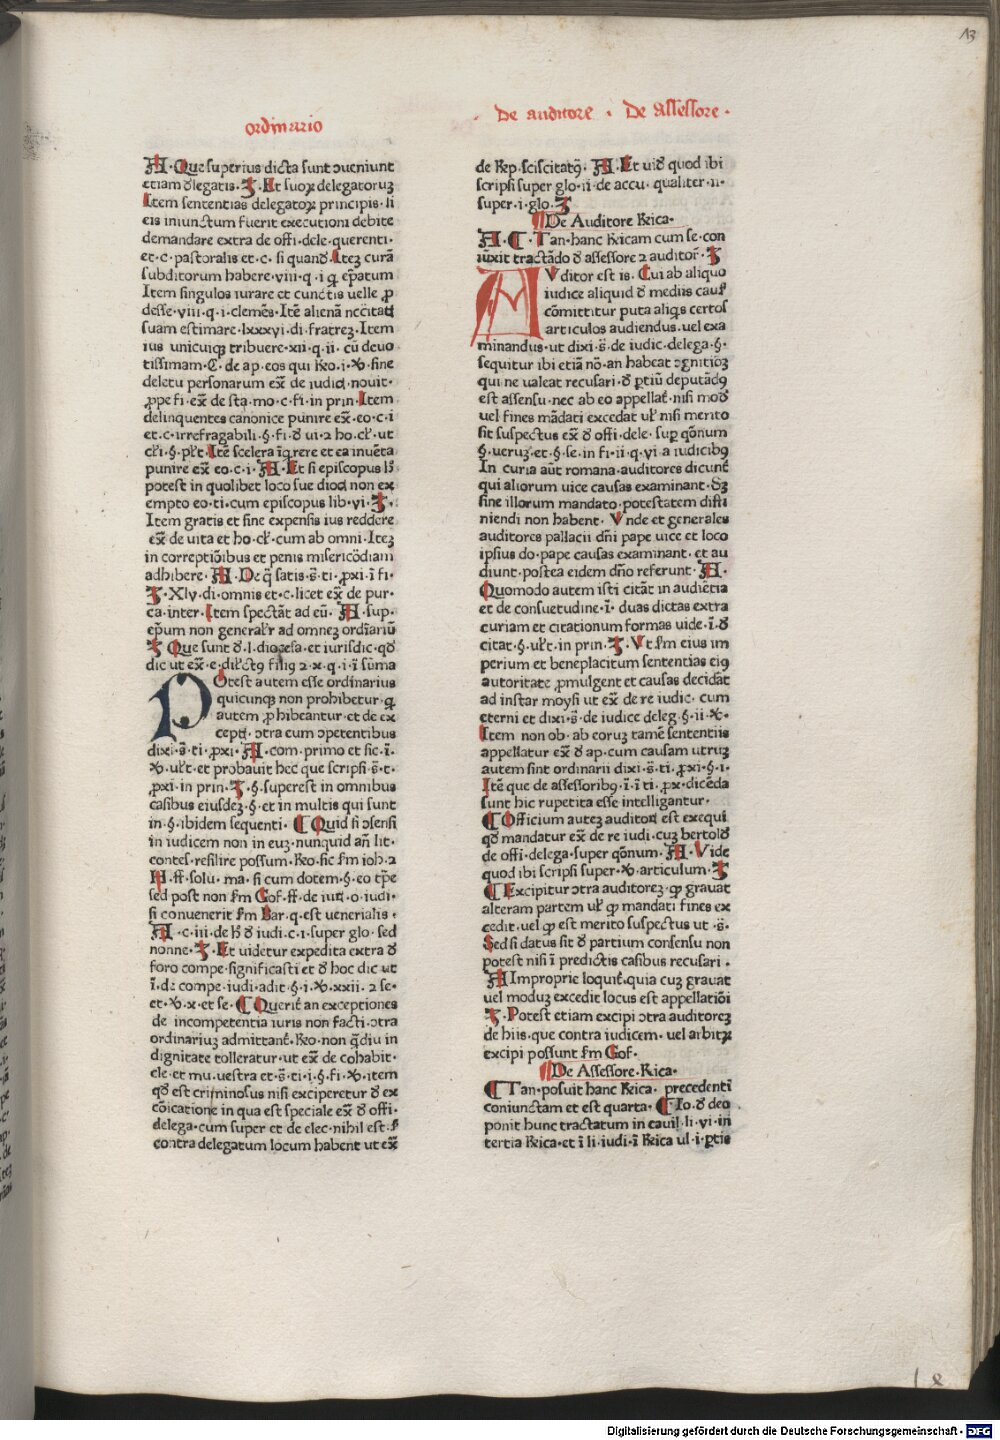 13
ordinario
· De auditore · De assessore ·
A · Que superius dicta sunt ɔueniunt
etiam delegatis · Z · Et suoꝝ delegatoruꝫ
Item sententias delegatoꝝ principis · li
eis iniunctum fuerit executioni debite
demandare extra de offi · dele · querenti ·
et · c · pastoralis et · c · si quando · Iteꝫ curā
subditorum habere · viii · q · i · q̄ ep̄atum
Item singulos iurare et cunctis uelle ꝓ
desse · viii · q · i · clemēs · Itē alienā nc̄citatē
suam estimare · lxxxvi · di · fratreꝫ · Item
ius unicuiqꝫ tribuere · xii · q · ii · cū deuo
tissimam · C · de ap · eos qui Reo · i · ꝟ · sine
deletu personarum ex̄ de iudicī · nouit ·
ꝓpe fi · ex̄ de sta · mo · c · fi · in prin · Item
delinquentes canonice punire ex̄ · eo · c · i
et · c · irrefragabili · § · fi · de vi · 2 ho · cl̄ · ut
cl̄i · § · pl̄t · Itē scelera īqrere et ea inuēta
punire ex̄ eo · c · i · A · Et si episcopus lꝫ
potest in quolibet loco sue dioc̄ non ex
empto eo · ti · cum episcopus lib · vi · Z ·
Item gratis et sine expensis ius reddere
ex̄ de uita et ho · cl̄ · cum ab omni · Iteꝫ
in correptiōibus et penis misericōdiam
adhibere · A · De q̄ satis · s̄ · ti · ꝓxi · ī fi ·
Z · Xlv · di · omnis et · c · licet ex̄ de pur ·
ca · inter · Item spectāt ad eū · A · sup ·
ep̄um non general'r ad omneꝫ ordīariū
Z · Que sunt de · l · diocesa · et iurisdic · qd̄
dic ut ex̄ · e · dil'ctꝰ filiꝰ 2 · x · q · i · ī sūma
POtest autem esse ordinarius
quicunqꝫ non prohibetur · q̄
autem ꝓhibeantur · et de ex
cepti · ɔtra cum ɔpetentibus
dixi · s̄ · ti · ꝓxi · A · com · primo et sic · ī ·
ꝟ · ul't · et probauit hec que scripsi · s̄ · t ·
ꝓxi · in prin · Z · § · superest in omnibus
casibus eiusdeꝫ · § · et in multis qui sunt
in · § · ibidem sequenti · ¶ Quid si ɔsensi
in iudicem non in euꝫ · nunquid an̄ lit ·
contes · resilire possum · Reo · sic s̄m ioh · 2
N · ff · solu · ma · si cum dotem · § · eo tp̄e
sed post non s̄m Gof · ff · de iuri · o · iudi ·
si conuenerit s̄m Bar · q · est uenerialis ·
A · c · iii · de lꝫ de iudi · c · i · super glo · sed
nonne · Z · Et uidetur expedita extra de
foro compe · significasti et de hoc dic ut
ī · de compe · iudi · adit · § · i · ꝟ · xxii · 2 se ·
et · ꝟ · x · et se · ¶ Querit̄ an exceptiones
de incompetentia iuris non facti · ɔtra
ordinariuꝫ admittant̄ · Reo · non q̄diu in
dignitate tolleratur · ut ex̄ de cohabit ·
cle · et mu · uestra et · s̄ · ti · i · § · fi · ꝟ · item
qd̄ est criminosus nisi exciperetur de ex
cōicatione in qua est speciale ex̄ de offi ·
delega · cum super et de elec · nihil est · s
contra delegatum locum habent ut ex̄
de Rep · sciscitatꝰ · A · Et uid̄ quod ibi
scripsi super glo · ii · de accu · qualiter · ii ·
super · i · glo · Z
¶ De Auditore Rica ·
A · C · Tan · hanc Ricam cum se · con
iūxit tractādo de assessore 2 auditor̄ · Z
AVditor est is · Cui ab aliquo
iudice aliquid de mediis caus̄
cōmittitur puta aliqs certos
articulos audiendus · uel exa
minandus · ut dixi · s̄ · de iudic · delega · § ·
sequitur ibi etiā nō · an habeat ɔgnitiōꝫ
qui ne ualeat recusari · de ꝑtiū deputādꝰ
est assensu · nec ab eo appellat̄ · nisi mod̄
uel fines mādati excedat ul̄ nisi merito
sit suspectus ex̄ de offi · dele · sup̄ qōnum
§ · ueruꝫ · et · § · se · in fi · ii · q · vi · a iudicibꝰ
In curia aūt romana · auditores dicunt̄
qui aliorum uice causas examinant · sꝫ
sine illorum mandato · potestatem diffi
niendi non habent · Vnde et generales
auditores pallacii dn̄i pape uice et loco
ipsius do · pape causas examinant · et au
diunt · postea eidem dn̄o referunt · A ·
Quomodo autem isti citāt in audiētia
et de consuetudine · ī · duas dictas extra
curiam et citationum formas uide · ī · de
citat · § · ul't · in prin · Z · Vt s̄m eius im
perium et beneplacitum sententias eiꝰ
autoritate ꝓmulgent et causas decidāt
ad instar moysi ut ex̄ de re iudic · cum
eterni et dixi · s̄ · de iudice deleg · § · ii · ꝟ ·
Item non ob · ab eoruꝫ tamē sententiis
appellatur ex̄ de ap · cum causam utruꝫ
autem sint ordinarii dixi · s̄ · ti · ꝓxi · § · i ·
Itē que de assessoribꝰ · ī · ī ti · ꝓx · dicēda
sunt hic rupetita esse intelligantur ·
¶ Officium auteꝫ auditori est exequi
qd̄ mandatur ex̄ de re iudi · cuꝫ bertold̄
de offi · delega · super qōnum · A · Vide
quod ibi scripsi super · ꝟ · articulum · Z
¶ Excipitur ɔtra auditoreꝫ · ꝙ grauat
alteram partem ul̄ ꝙ mandati fines ex
cedit · uel ꝙ est merito suspectus ut · s̄ ·
Sed si datus sit de partium consensu non
potest nisi ī predictis casibus recusari ·
A Improprie loquit̄ · quia cuꝫ grauat
uel moduꝫ excedit locus est appellatiōi
Z · Potest etiam excipi ɔtra auditoreꝫ
de hiis · que contra iudicem · uel arbitꝝ
excipi possunt s̄m Gof ·
¶ De Assessore · Rica ·
¶ Tan · posuit hanc Rica · precedenti
coniunctam et est quarta · ¶ Io · de deo
ponit hunc tractatum in cauil · li · vi · in
tertia Rica · et ī li · iudi · ī Rica ul · i · ꝑtis
Digitalisierung gefördert durch die Deutsche Forschungsgemeinschaft - DFG